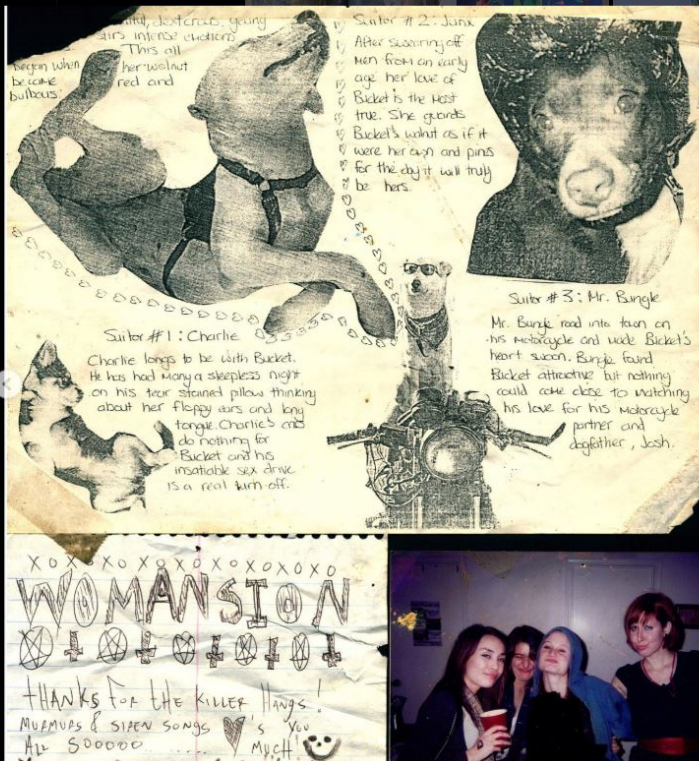 dextrous, young
stirs intense emotions
This all
began when her walnut
became red and
bulbous
Suitor #2: Junx
After swearing off
men from an early
age her love of
Bucket is the most
true. She guards
Bucket's walnut as if it
were her own and pines
for the day it will truly
be hers.
Suitor #1: Charlie
Charlie longs to be with Bucket.
He has had many a sleepless night
on his tear stained pillow thinking
about her floppy ears and long
tongue. Charlie's
do nothing for
Bucket and his
insatiable sex drive
is a real turn off.
Suitor #3: Mr. Bungle
Mr. Bungle road into town on
his motorcycle and made Bucket's
heart swoon. Bungle found
Bucket attractive but nothing
could come close to matching
his love for his motorcycle
partner and
dogfather, Josh.
XOXOXOXOXOXOXO
WOMANSION
THANKS FOR THE KILLER HANGS!
MURMURS & SIREN SONGS ♥'S YOU
ALL SOOOOO....... MUCH!